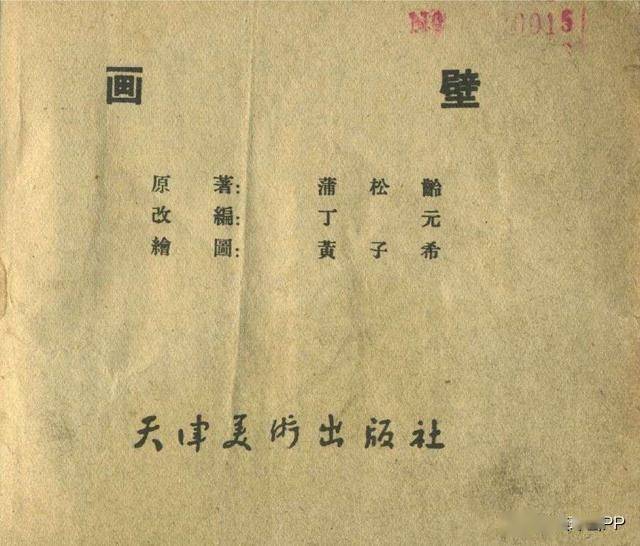 No 0015
画 壁
原著: 蒲松齡
改編: 丁元
繪圖: 黃子希
天津美術出版社
PP